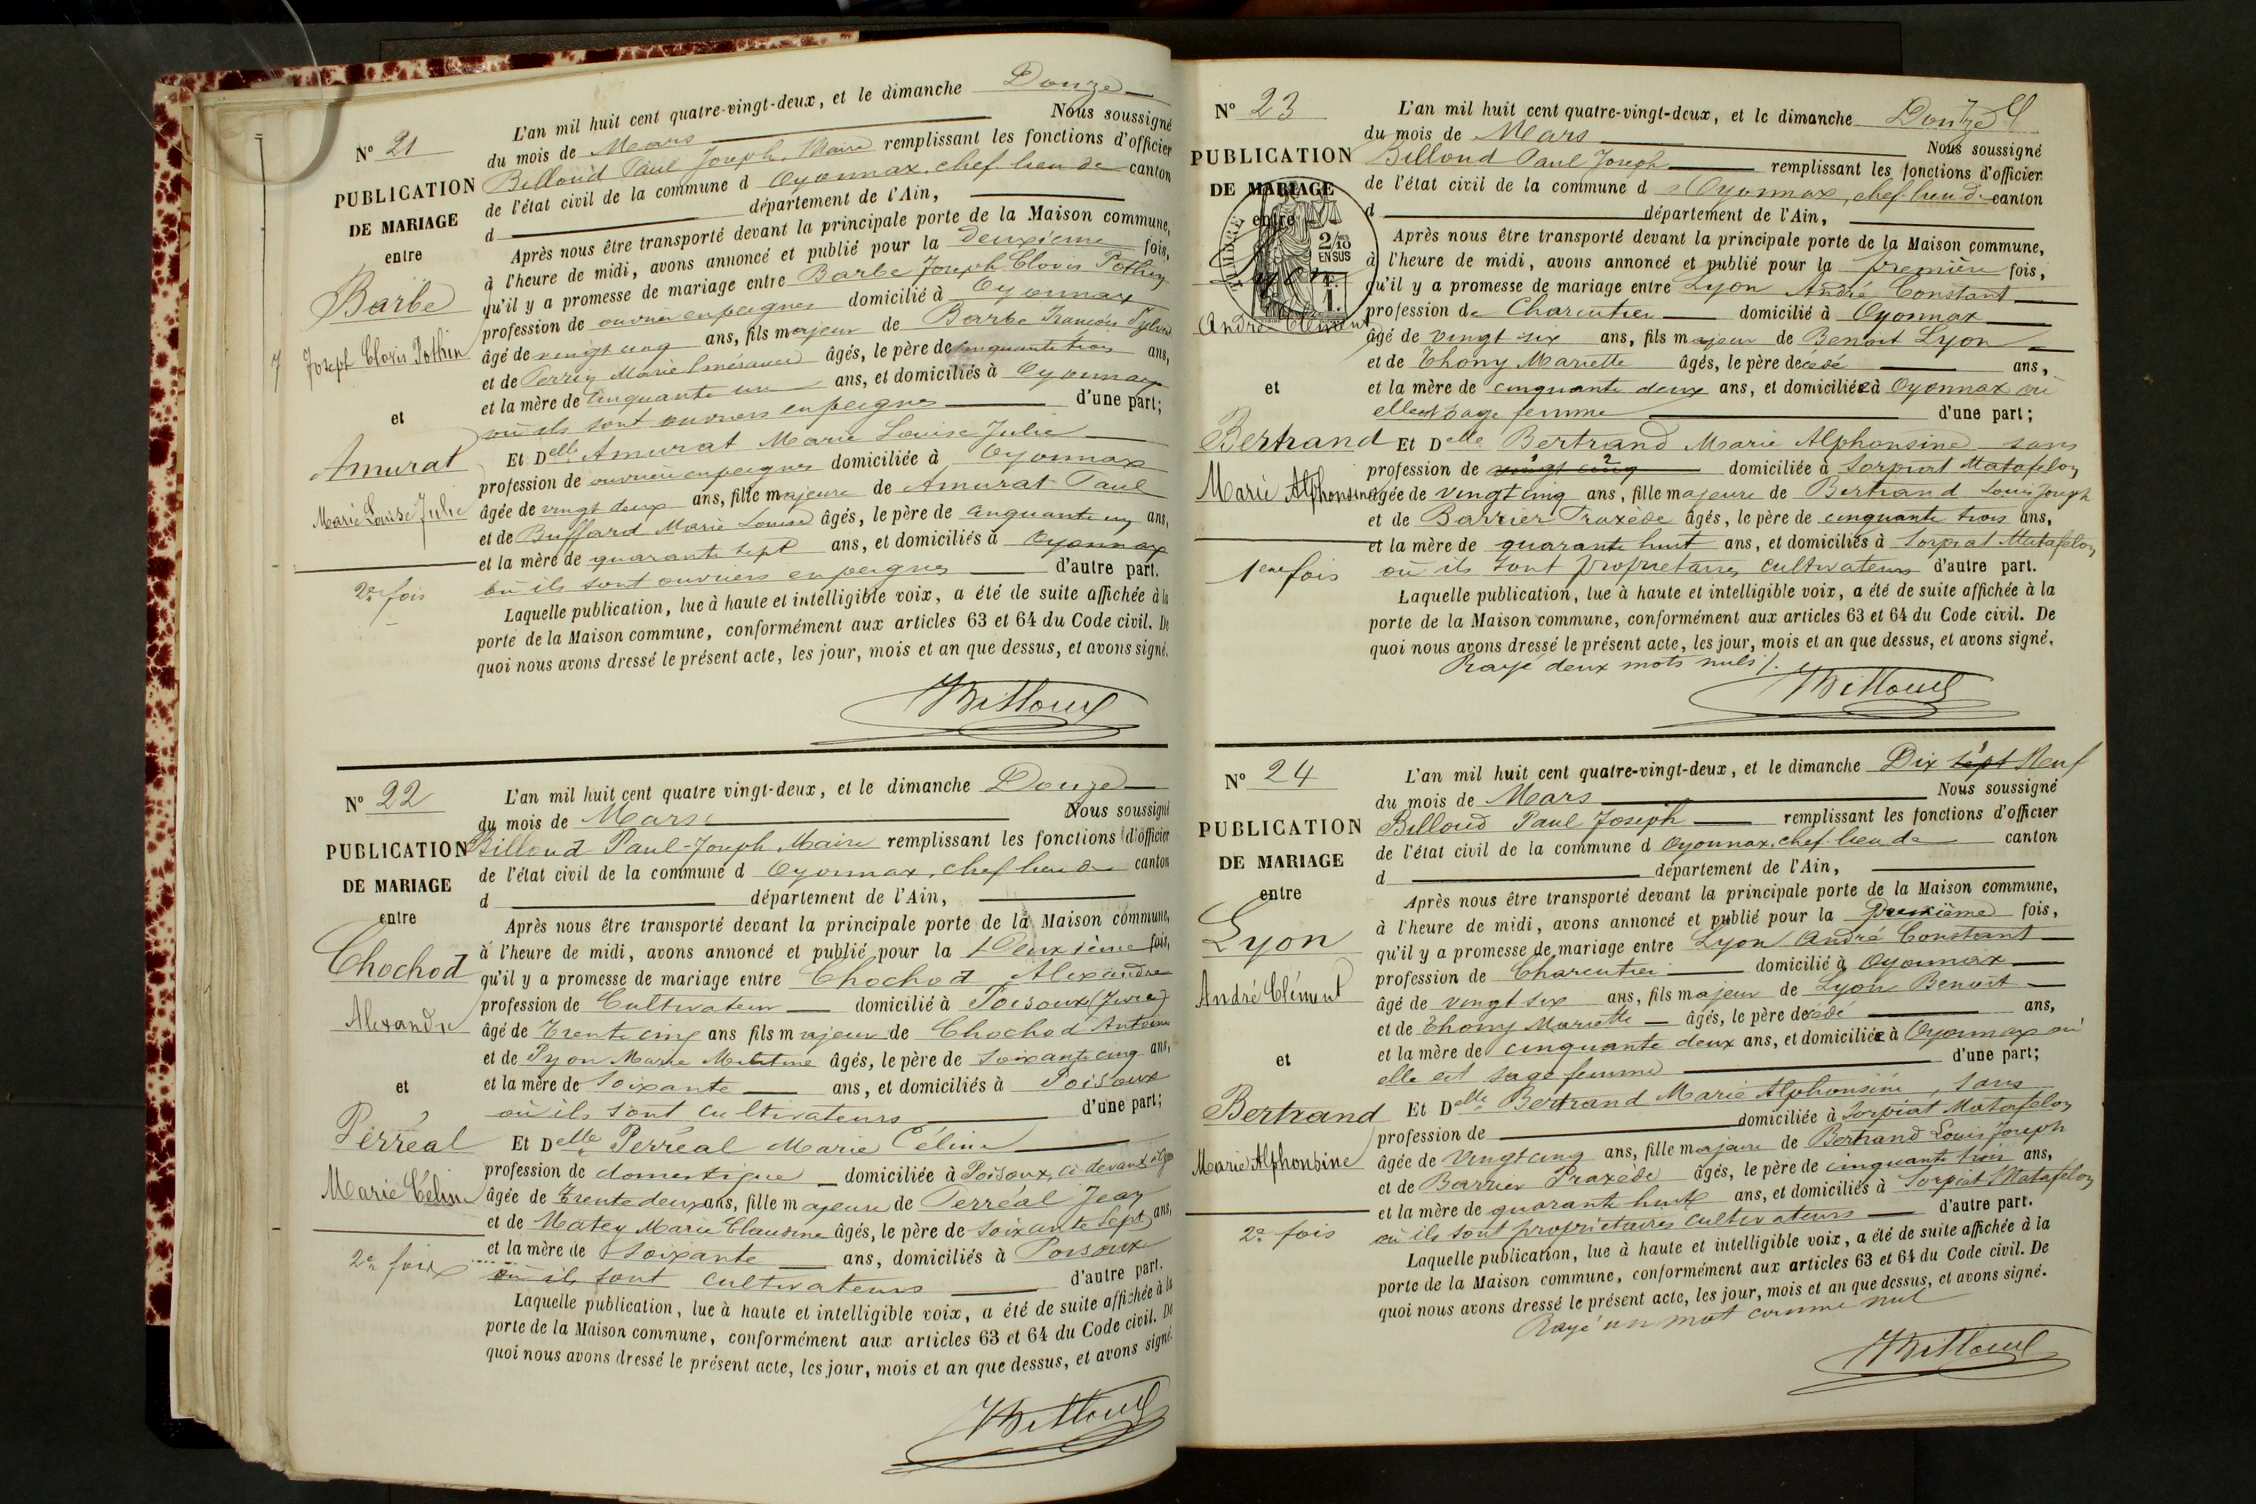 N° 21
PUBLICATION
DE MARIAGE
entre
Barbe
Joseph Clovis Pothin
et
Amurat
Marie Louise Julie
2e fois
L'an mil huit cent quatre-vingt-deux, et le dimanche Douze
du mois de Mars Nous soussigné
Billoud Paul Joseph, Maire remplissant les fonctions d'officier
de l'état civil de la commune d Oyonnax, chef-lieu de canton
d département de l'Ain,
Après nous être transporté devant la principale porte de la Maison commune,
à l'heure de midi, avons annoncé et publié pour la deuxième fois,
qu'il y a promesse de mariage entre Barbe Joseph Clovis Pothin
profession de ouvrier en peignes domicilié à Oyonnax
âgé de vingt cinq ans, fils majeur de Barbe François
et de Perrin Marie Emérance âgés, le père de cinquante trois ans,
et la mère de Cinquante un ans, et domiciliés à Oyonnax
où ils sont ouvriers en peignes d'une part;
Et Delle Amurat Marie Louise Julie
profession de ouvrière en peignes domiciliée à Oyonnax
âgée de vingt deux ans, fille majeure de Amurat Paul
et de Buffard Marie Louise âgés, le père de Cinquante un ans,
et la mère de quarante sept ans, et domiciliés à Oyonnax
où ils sont ouvriers en peignes d'autre part.
Laquelle publication, lue à haute et intelligible voix, a été de suite affichée à la
porte de la Maison commune, conformément aux articles 63 et 64 du Code civil. De
quoi nous avons dressé le présent acte, les jour, mois et an que dessus, et avons signé.
JBilloud
N° 22
PUBLICATION
DE MARIAGE
entre
Chochod
Alexandre
et
Perréal
Marie Céline
2e fois
L'an mil huit cent quatre vingt-deux, et le dimanche Douze
du mois de Mars Nous soussigné
Billoud Paul-Joseph, Maire remplissant les fonctions d'officier
de l'état civil de la commune d Oyonnax, chef lieu de canton
d département de l'Ain,
Après nous être transporté devant la principale porte de la Maison commune,
à l'heure de midi, avons annoncé et publié pour la Deuxième fois,
qu'il y a promesse de mariage entre Chochod Alexandre
profession de Cultivateur domicilié à Poisoux (Jura)
âgé de Trente cinq ans fils majeur de Chochod Antoine
et de Pyon Marie âgés, le père de Soixante cinq ans,
et la mère de Soixante ans, et domiciliés à Poisoux
où ils sont cultivateurs d'une part;
Et Delle Perréal Marie Céline
profession de domestique domiciliée à Poisoux, ci devant
âgée de Trente deux ans, fille majeure de Perréal Jean
et de Matey Marie Claudine âgés, le père de Soixante sept ans,
et la mère de Soixante ans, domiciliés à Poisoux
où ils sont cultivateurs d'autre part.
Laquelle publication, lue à haute et intelligible voix, a été de suite affichée à la
porte de la Maison commune, conformément aux articles 63 et 64 du Code civil. De
quoi nous avons dressé le présent acte, les jour, mois et an que dessus, et avons signé.
JBilloud
N° 23
PUBLICATION
DE MARIAGE
entre
2/10 EN SUS
1F.
Lyon
André Clément
et
Bertrand
Marie Alphonsine
1ère fois
L'an mil huit cent quatre-vingt-deux, et le dimanche Douze
du mois de Mars Nous soussigné
Billoud Paul Joseph remplissant les fonctions d'officier
de l'état civil de la commune d Oyonnax, chef-lieu de canton
d département de l'Ain,
Après nous être transporté devant la principale porte de la Maison commune,
à l'heure de midi, avons annoncé et publié pour la première fois,
qu'il y a promesse de mariage entre Lyon André Constant
profession de Charcutier domicilié à Oyonnax
âgé de vingt six ans, fils majeur de Benoit Lyon
et de Thony Mariette âgés, le père décédé ans,
et la mère de cinquante deux ans, et domiciliée à Oyonnax où
elle est sage femme d'une part;
Et Delle Bertrand Marie Alphonsine sans
profession de vingt cinq domiciliée à Sorpiat Matafelon
âgée de vingt cinq ans, fille majeure de Bertrand Louis Joseph
et de Barrier Praxède âgés, le père de cinquante trois ans,
et la mère de quarante huit ans, et domiciliés à Sorpiat Matafelon
où ils sont propriétaires cultivateurs d'autre part.
Laquelle publication, lue à haute et intelligible voix, a été de suite affichée à la
porte de la Maison commune, conformément aux articles 63 et 64 du Code civil. De
quoi nous avons dressé le présent acte, les jour, mois et an que dessus, et avons signé.
Rayé deux mots nuls
JBilloud
N° 24
PUBLICATION
DE MARIAGE
entre
Lyon
André Clément
et
Bertrand
Marie Alphonsine
2e fois
L'an mil huit cent quatre-vingt-deux, et le dimanche Dix sept Neuf
du mois de Mars Nous soussigné
Billoud Paul Joseph remplissant les fonctions d'officier
de l'état civil de la commune d Oyonnax, chef-lieu de canton
d département de l'Ain,
Après nous être transporté devant la principale porte de la Maison commune,
à l'heure de midi, avons annoncé et publié pour la Deuxième fois,
qu'il y a promesse de mariage entre Lyon André Constant
profession de Charcutier domicilié à Oyonnax
âgé de vingt six ans, fils majeur de Lyon Benoit
et de Thony Mariette âgés, le père décédé ans,
et la mère de cinquante deux ans, et domiciliée à Oyonnax où
elle est sage femme d'une part;
Et Delle Bertrand Marie Alphonsine, sans
profession de domiciliée à Sorpiat Matafelon
âgée de Vingt cinq ans, fille majeure de Bertrand Louis Joseph
et de Barrier Praxède âgés, le père de cinquante trois ans,
et la mère de quarante huit ans, et domiciliés à Sorpiat Matafelon
où ils sont propriétaires cultivateurs d'autre part.
Laquelle publication, lue à haute et intelligible voix, a été de suite affichée à la
porte de la Maison commune, conformément aux articles 63 et 64 du Code civil. De
quoi nous avons dressé le présent acte, les jour, mois et an que dessus, et avons signé.
Rayé un mot comme nul
JBilloud